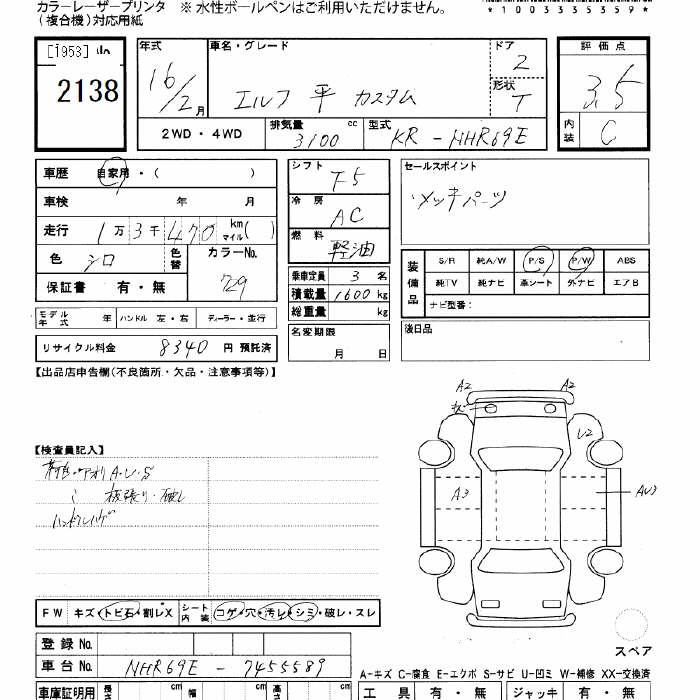 カラーレーザープリンタ ※ 水性ボールペンはご利用いただけません。
(複合機)対応用紙
*1003335359*
[1953] 小
2138
年式 16/2月
車名・グレード エルフ 平 カスタム
ドア 2
形状 T
2WD・4WD
排気量 3100 cc
型式 KR-NHR69E
評価点 3.5
内装 C
車歴 自家用・( )
車検 年 月
走行 1万3千470 km マイル( )
色 シロ 色替 カラーNo. 729
保証書 有・無
シフト F5
冷房 AC
燃料 軽油
乗車定員 3名
積載量 1600kg
総重量 kg
セールスポイント
メッキパーツ
装備品
S/R 純A/W P/S P/W ABS
純TV 純ナビ 革シート 外ナビ エアB
ナビ型番:
モデル年式 年 ハンドル 左・右 ディーラー・並行
リサイクル料金 8340 円 預託済
名変期限 月 日
後日品
【出品店申告欄(不良箇所・欠品・注意事項等)】
【検査員記入】
アオリA・U・S
板張り・破レ
ハンドルハゲ
A2 A2
U2
A3
AU3
FW キズ・トビ石・割レX シート内装 コゲ・穴・汚レ・シミ・破レ・スレ
スペア
登録No.
車台No. NHR69E-7455589
A-キズ C-腐食 E-エクボ S-サビ U-凹ミ W-補修 XX-交換済
車庫証明用 長さ cm 幅 cm 高さ cm
工具 有・無 ジャッキ 有・無